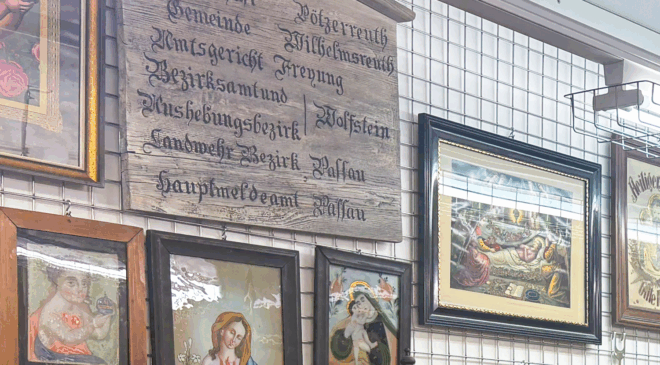 Pötzerreuth
Gemeinde Wilhelmsreuth
Amtsgericht Freyung
Bezirksamt und
Aushebungsbezirk | Wolfstein
Landwehr Bezirk Passau
Hauptmeldeamt Passau